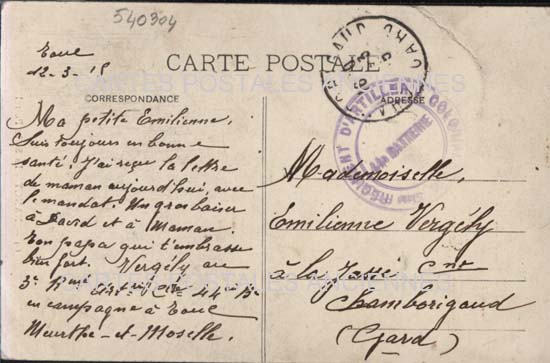 540304
Toul
12-3-15
CARTE POSTALE
CARTES POSTALES ANCIENNES
CORRESPONDANCE
ADRESSE
Ma petite Emilienne.
Suis toujours en bonne
santé. J'ai reçu la lettre
de maman aujourd'hui, avec
le mandat. Un gros baiser
à David et à Maman.
Ton papa qui t'embrasse
bien fort. Vergély au
3e
en campagne à Toul
Meurthe-et-Moselle.
RÉGIMENT D'ARTILLERIE COLONIALE
44e BATTERIE
GARD
Mademoiselle.
Emilienne Vergély
à la Cne
Chamborigaud
(Gard)
CARTES POSTALES ANCIENNES